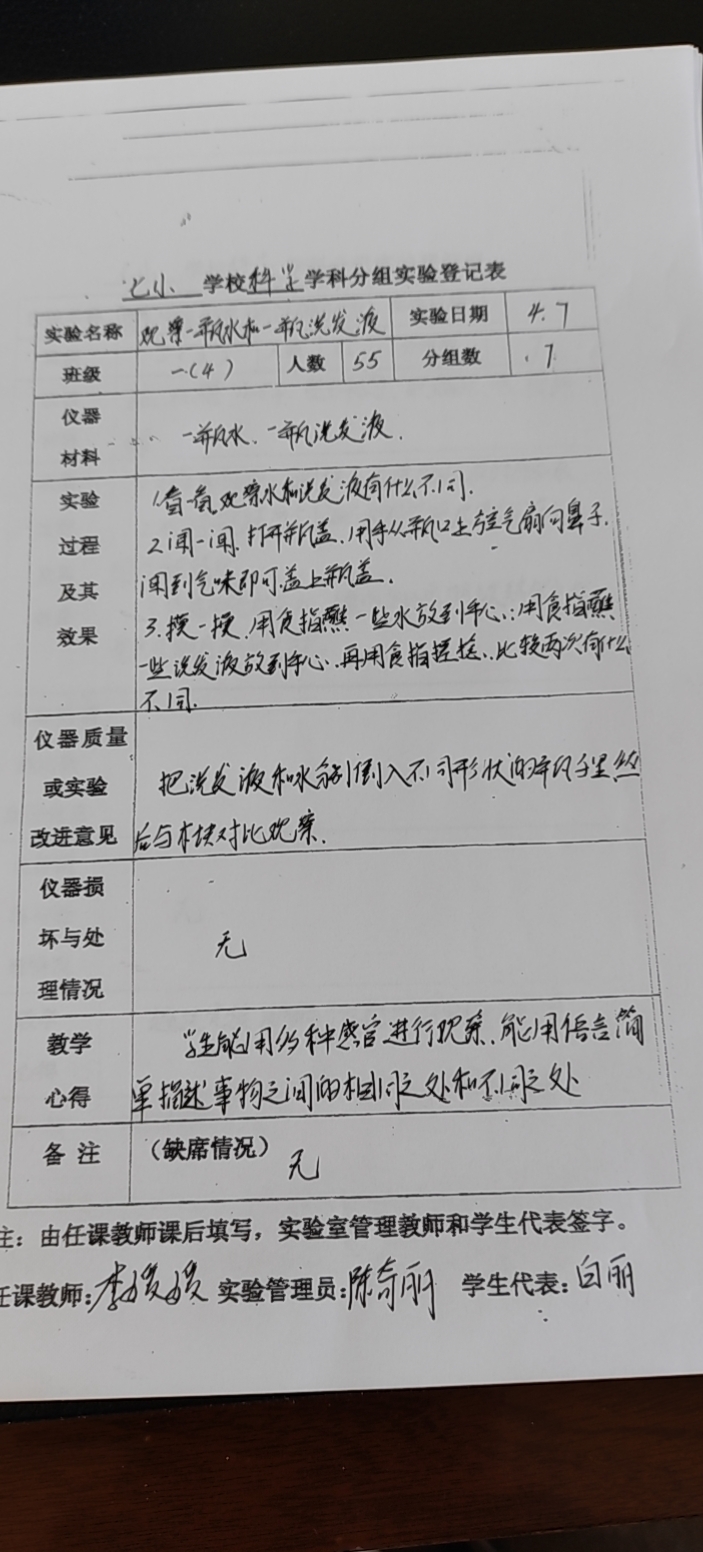 七小 学校科学学科分组实验登记表
实验名称 观察一瓶水和一瓶洗发液 实验日期 4.7
班级 一(4) 人数 55 分组数 7
仪器
材料
一瓶水、一瓶洗发液.
实验
过程
及其
效果
1.看一看,观察水和洗发液有什么不同.
2.闻一闻.打开瓶盖.用手从瓶口上方将气扇向鼻子.
闻到气味即可盖上瓶盖.
3.摸一摸.用食指蘸一些水放到手心.;用食指蘸
一些洗发液放到手心.再用食指搓搓.比较两次有什么
不同.
仪器质量
或实验
改进意见
把洗发液和水分别倒入不同形状的瓶子里然
后与木块对比观察.
仪器损
坏与处
理情况
无
教学
心得
学生能用多种感官进行观察.能用语言简
单描述事物之间的相同之处和不同之处
备 注 (缺席情况) 无
注:由任课教师课后填写,实验室管理教师和学生代表签字。
任课教师:李媛媛 实验管理员:陈奇丽 学生代表:白丽